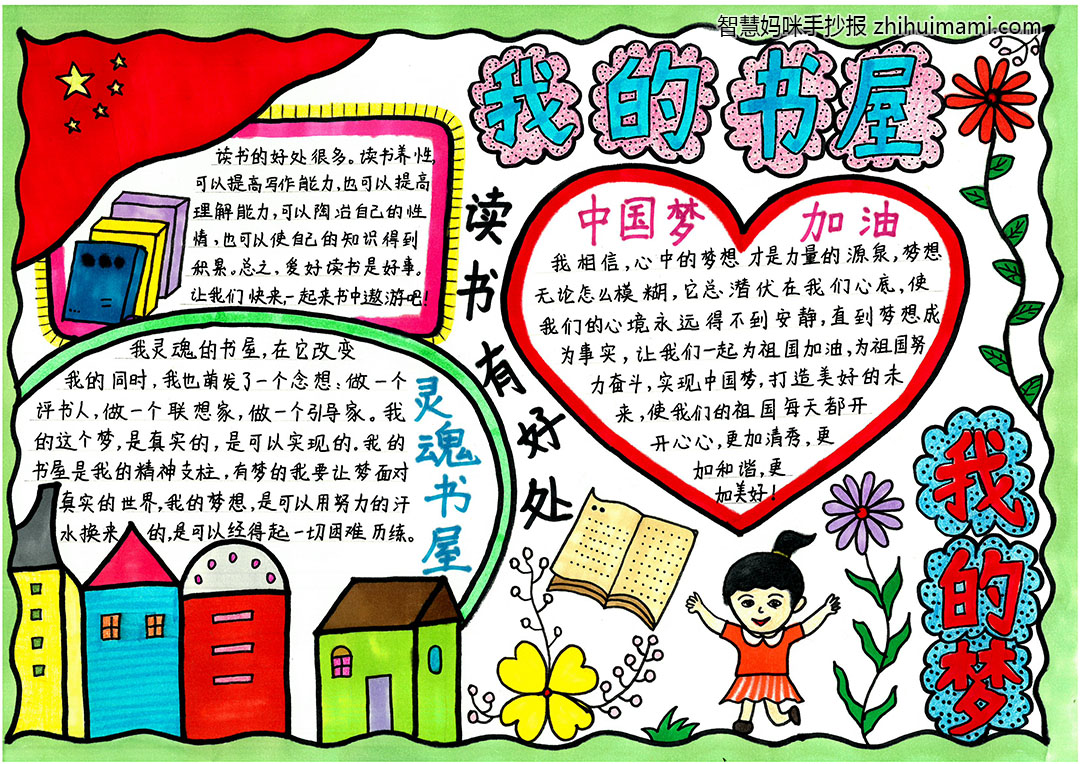 智慧妈咪手抄报 zhihuimami.com
我的书屋
读书的好处很多。读书养性,
可以提高写作能力,也可以提高
理解能力,可以陶冶自己的性
情,也可以使自己的知识得到
积累。总之,爱好读书是好事。
让我们快来一起来书中遨游吧!
读书有好处
中国梦 加油
我相信,心中的梦想才是力量的源泉,梦想
无论怎么模糊,它总潜伏在我们心底,使
我们的心境永远得不到安静,直到梦想成
为事实,让我们一起为祖国加油,为祖国努
力奋斗,实现中国梦,打造美好的未
来,使我们的祖国每天都开
开心心,更加清秀,更
加和谐,更
加美好!
灵魂书屋
我灵魂的书屋,在它改变
我的同时,我也萌发了一个念想:做一个
评书人,做一个联想家,做一个引导家。我
的这个梦,是真实的,是可以实现的.我的
书屋是我的精神支柱,有梦的我要让梦面对
真实的世界,我的梦想,是可以用努力的汗
水换来的,是可以经得起一切困难历练。
我的梦